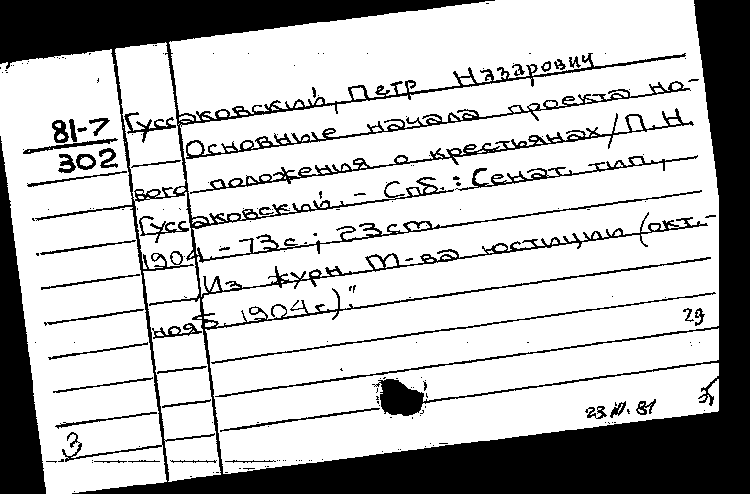 81-7
302
Гуссаковский, Петр Назарович
Основные начала проекта но-
вого положения о крестьянах/П.Н.
Гуссаковский. - Спб.: Сенат. тип.,
1904. - 73с.; 23см.
„Из журн. М-ва юстиции (окт.-
нояб. 1904г.)."
29
3
23.III.81